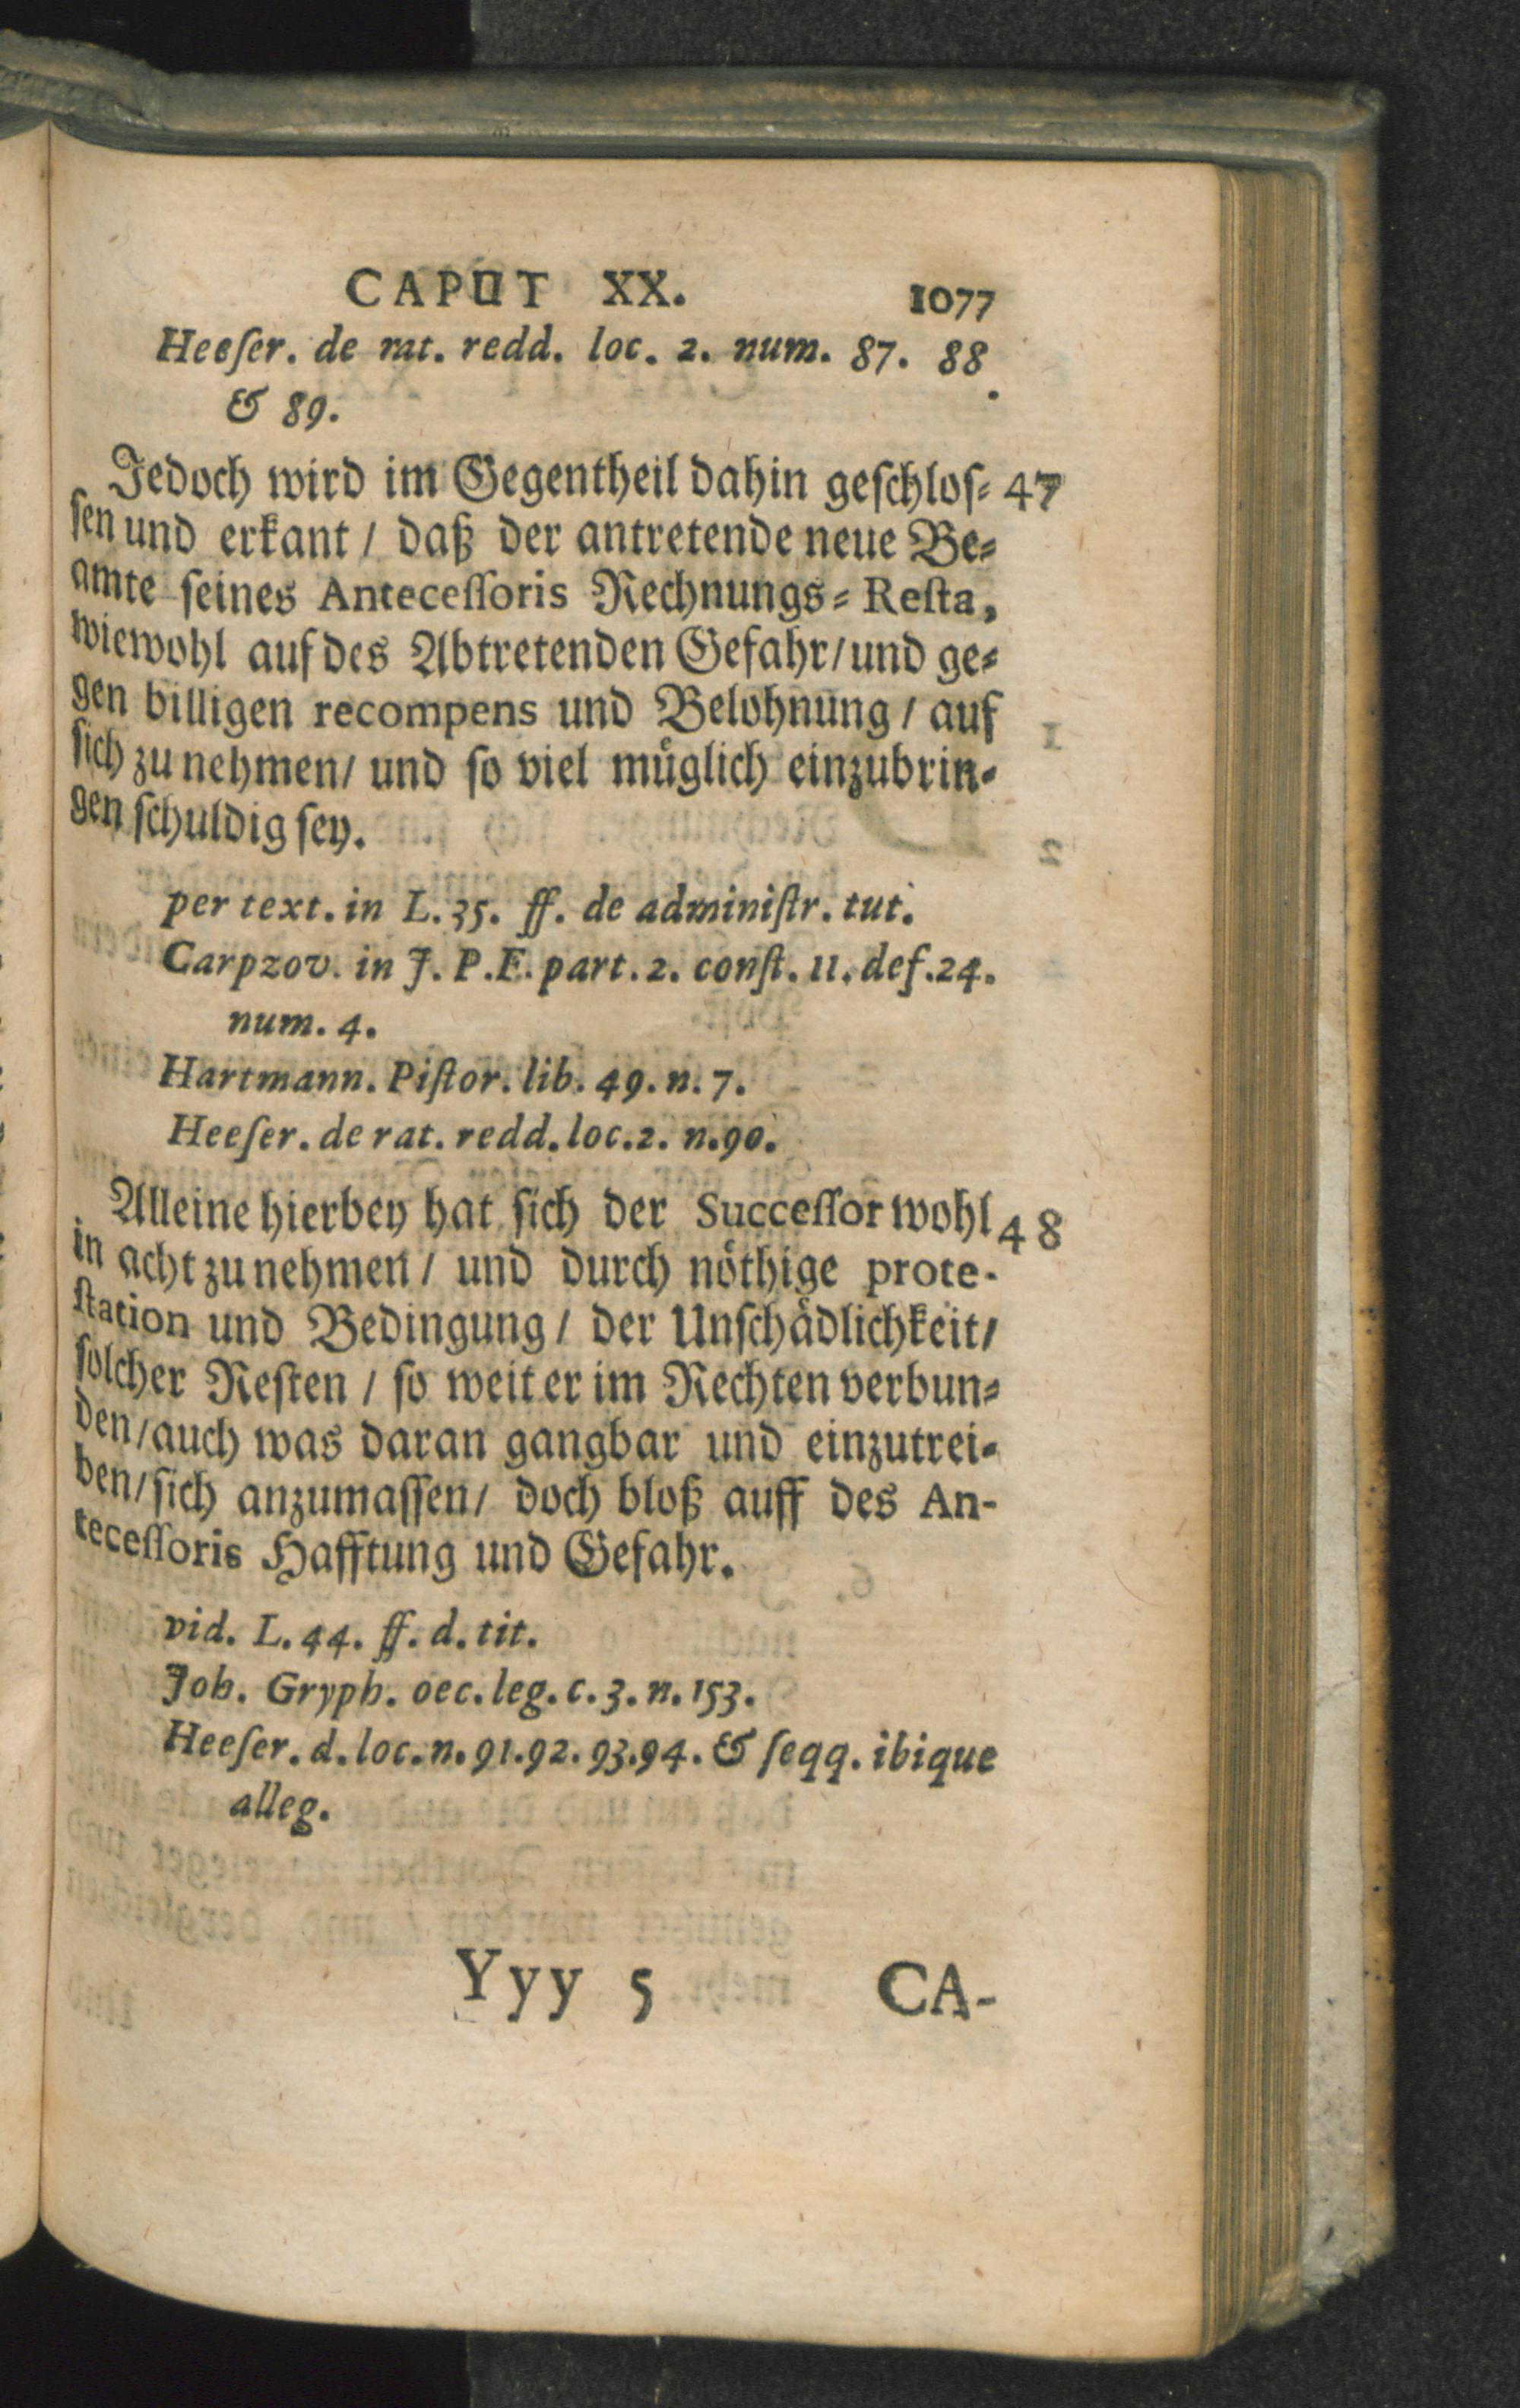 CAPUT XX. 1077
Heeſer. de rat. redd. loc. 2. num. 87. 88.
& 89.
Jedoch wird im Gegentheil dahin geſchloſ⸗ 47
ſen und erkant / daß der antretende neue Be⸗
amte ſeines Anteceſſoris Rechnungs⸗Reſta,
wiewohl auf des Abtretenden Gefahr / und ge⸗
gen billigen recompens und Belohnung / auf
ſich zu nehmen / und ſo viel müglich einzubrin⸗
gen ſchuldig ſey.
per text. in L. 35. ff. de adminiſtr. tut.
Carpzov. in J. P. F. part. 2. conſt. 11. def. 24.
num. 4.
Hartmann. Piſtor. lib. 49. n. 7.
Heeſer. de rat. redd. loc. 2. n. 90.
Alleine hierbey hat ſich der Succeſſor wohl 48
in acht zu nehmen / und durch nöthige prote-
ſtation und Bedingung / der Unſchädlichkeit /
ſolcher Reſten / ſo weit er im Rechten verbun⸗
den / auch was daran gangbar und einzutrei⸗
ben / ſich anzumaſſen / doch bloß auff des An-
teceſſoris Hafftung und Gefahr.
vid. L. 44. ff. d. tit.
Joh. Gryph. oec. leg. c. 3. n. 153.
Heeſer. d. loc. n. 91. 92. 93. 94. & ſeqq. ibique
alleg.
Yyy 5 CA-